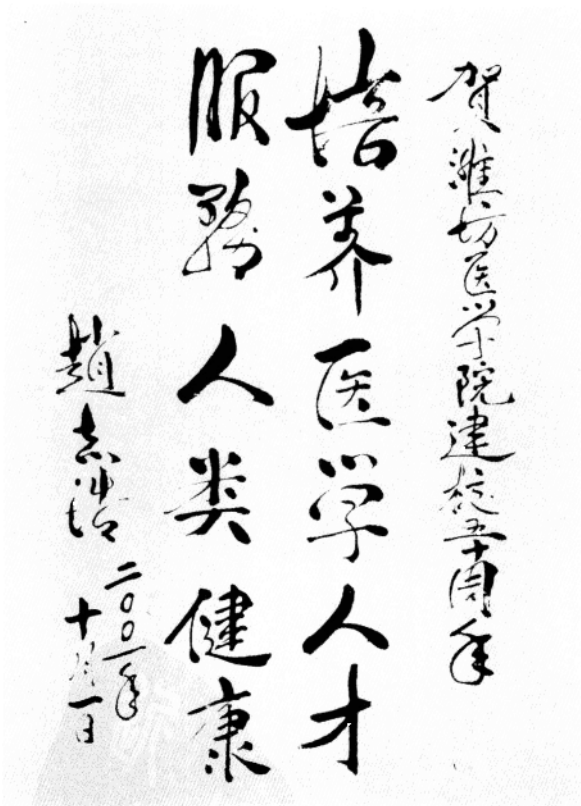 贺潍坊医学院建校五十周年
培养医学人才
服務人类健康
趙志浩
二〇〇一年
十月一日